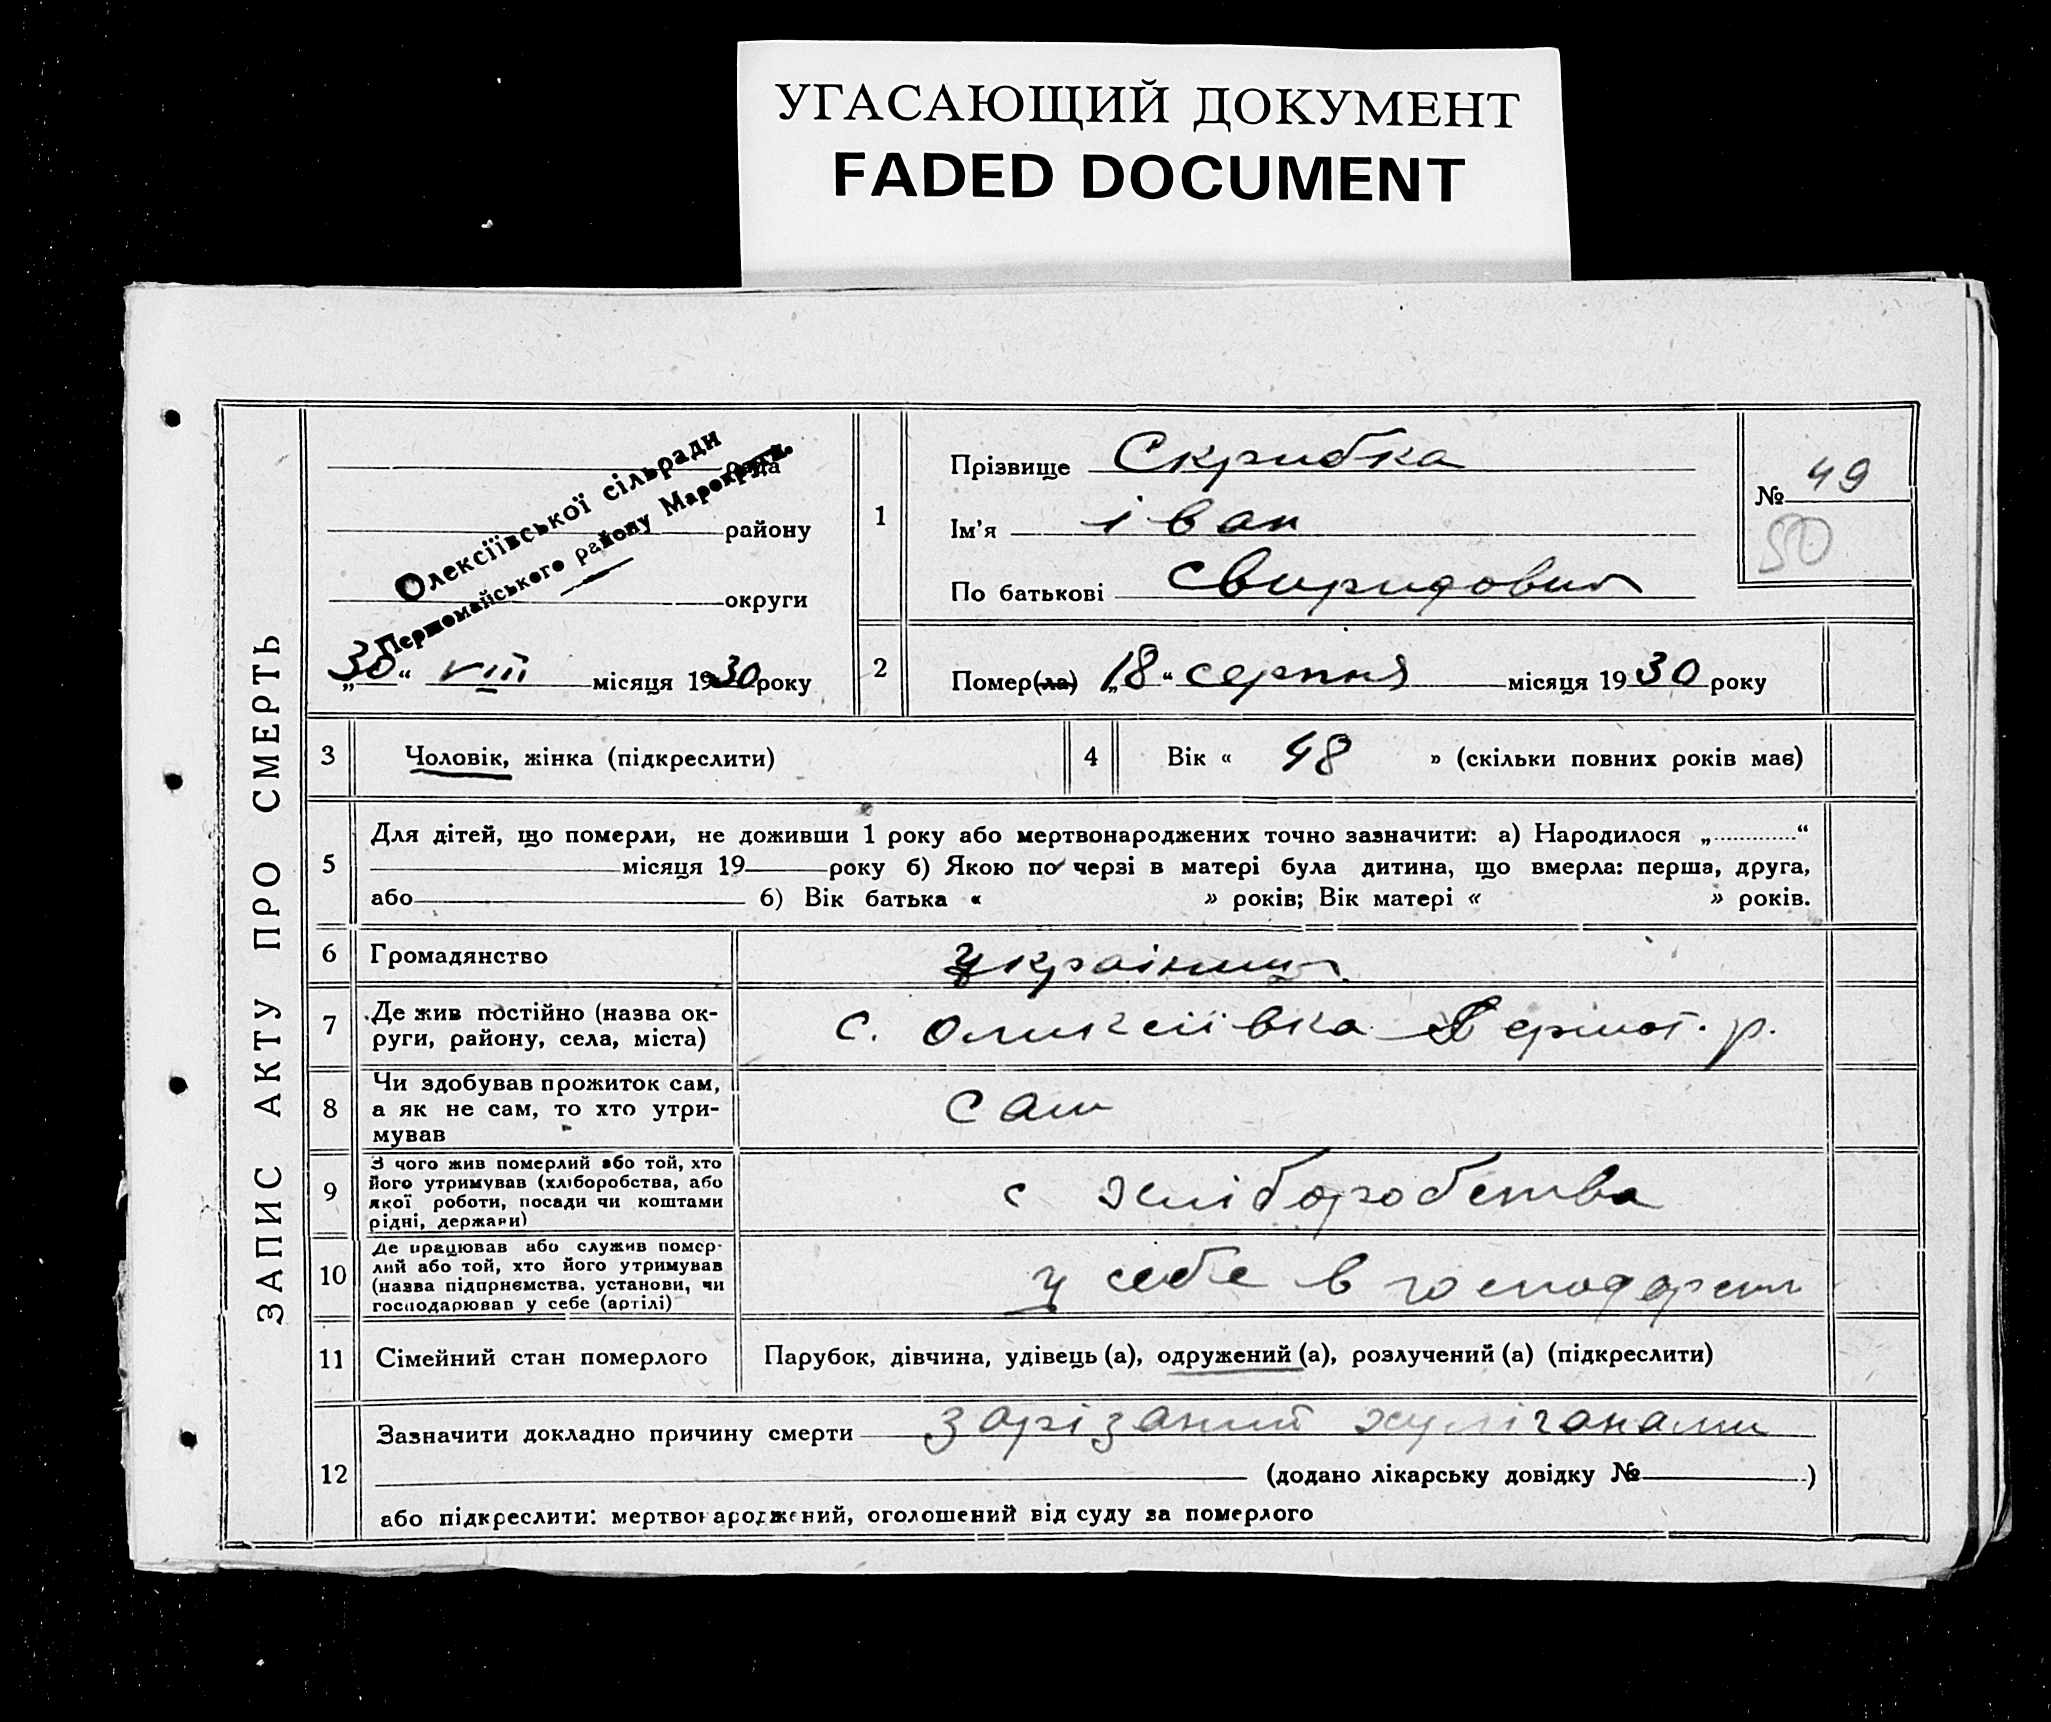 УГАСАЮЩИЙ ДОКУМЕНТ
FADED DOCUMENT
ЗАПИС АКТУ ПРО СМЕРТЬ
Олексіївської сільради
Первомайського району Маро
рада
району
округи
„30“ VIII місяця 1930 року
1
Прізвище Скрибка
Ім'я іван
По батькові Свиридович
№ 49
50
2
Помер(ла) „18“ серпня місяця 1930 року
3
Чоловік, жінка (підкреслити)
4
Вік « 48 » (скільки повних років має)
5
Для дітей, що померли, не доживши 1 року або мертвонароджених точно зазначити: а) Народилося „ “
місяця 19 року б) Якою по черзі в матері була дитина, що вмерла: перша, друга,
або б) Вік батька « » років; Вік матері « » років.
6
Громадянство
українец
7
Де жив постійно (назва ок-
руги, району, села, міста)
с. Оликсіївка Первом. р.
8
Чи здобував прожиток сам,
а як не сам, то хто утри-
мував
сам
9
З чого жив померлий або той, хто
його утримував (хліборобства, або
якої роботи, посади чи коштами
рідні, держави)
с хліборобства
10
Де працював або служив помер-
лий або той, хто його утримував
(назва підприємства, установи, чи
господарював у себе (артілі)
у себе в господарстві
11
Сімейний стан померлого
Парубок, дівчина, удівець (а), одружений (а), розлучений (а) (підкреслити)
12
Зазначити докладно причину смерти зарізаний хуліганами
(додано лікарську довідку № )
або підкреслити: мертвонароджений, оголошений від суду за померлого